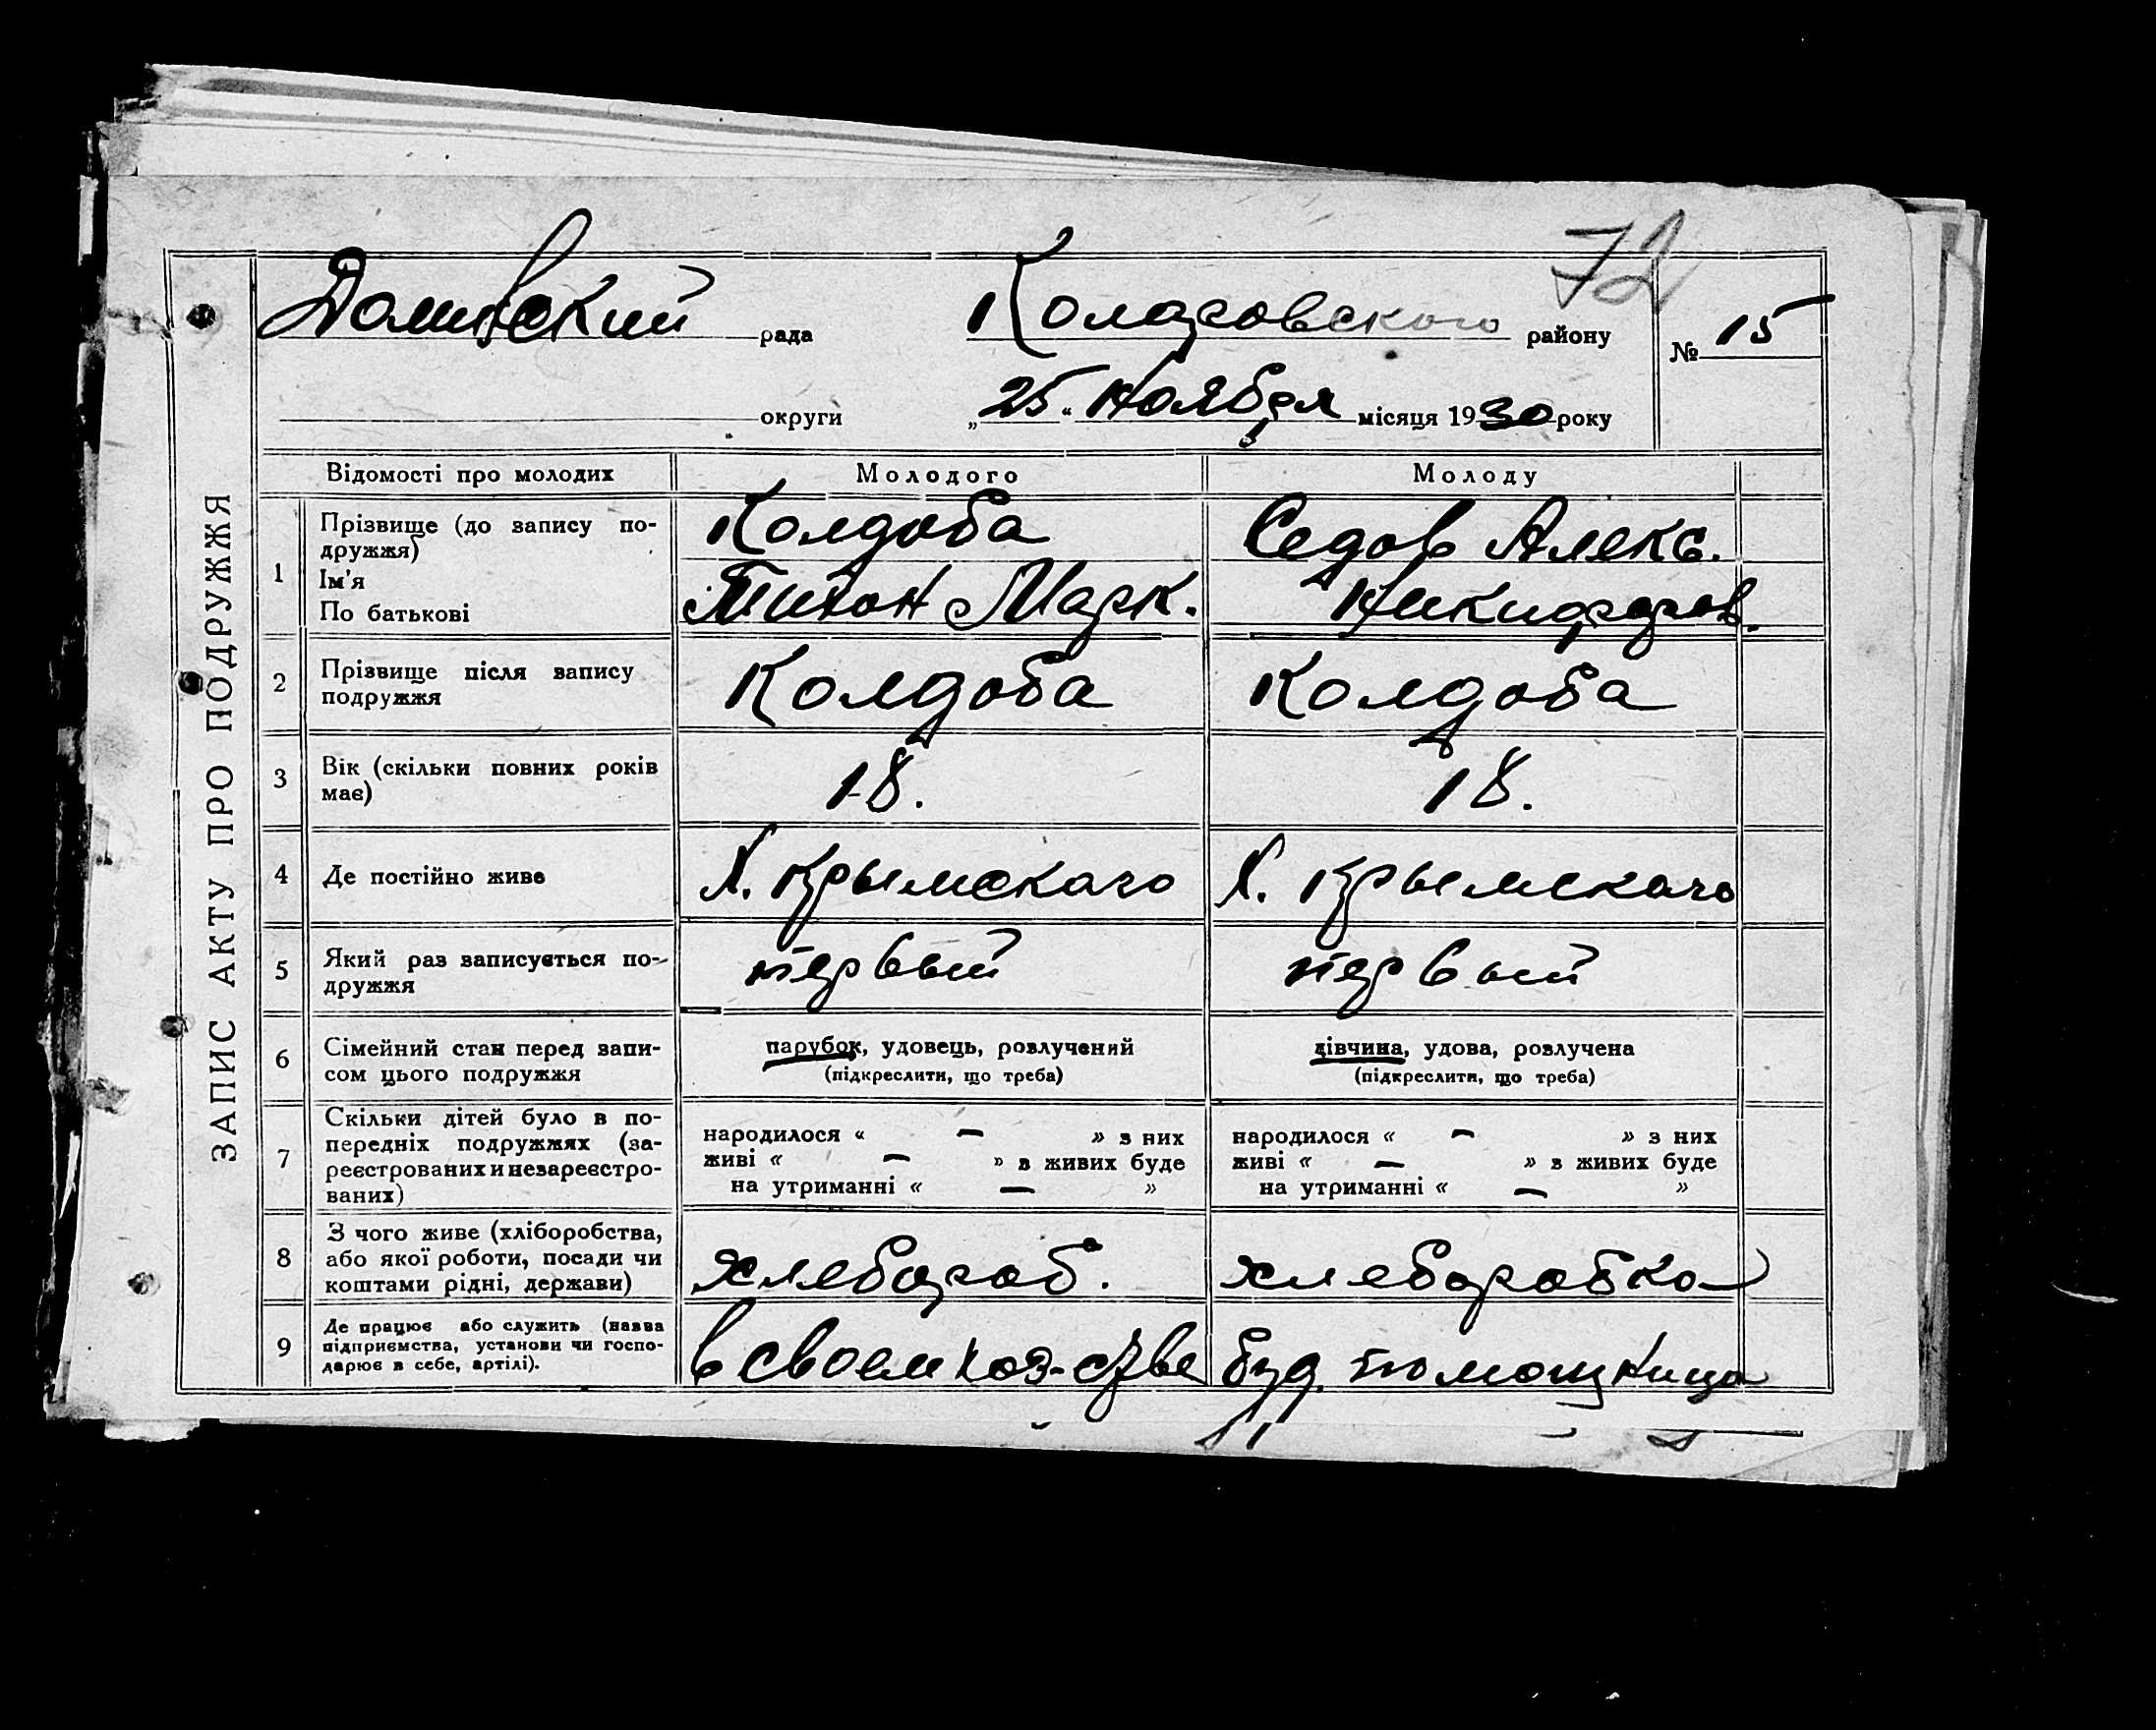 72
Домивский рада Коларовского району № 15
округи „25“ Ноября місяця 1930 року
ЗАПИС АКТУ ПРО ПОДРУЖЖЯ
Відомості про молодих Молодого Молоду
1 Прізвище (до запису по-
дружжя)
Ім'я
По батькові
Колдоба
Тихон Марк.
Седов Алекс.
Никифоров.
2 Прізвище після запису
подружжя
Колдоба Колдоба
3 Вік (скільки повних років
має)
18. 18.
4 Де постійно живе Х. Крымскаго Х. Крымскаго
5 Який раз записується по-
дружжя
первый первый
6 Сімейний стан перед запи-
сом цього подружжя
парубок, удовець, розлучений
(підкреслити, що треба)
дівчина, удова, розлучена
(підкреслити, що треба)
7 Скільки дітей було в по-
передніх подружжях (за-
реєстрованих и незареєстро-
ваних)
народилося « — » з них
живі « — » з живих буде
на утриманні « — »
народилося « — » з них
живі « — » з живих буде
на утриманні « — »
8 З чого живе (хліборобства,
або якої роботи, посади чи
коштами рідні, держави)
хлебороб. хлеборобка
9 Де працює або служить (назва
підприємства, установи чи госпо-
дарює в себе, артілі).
в своем хоз-стве буд. помощница